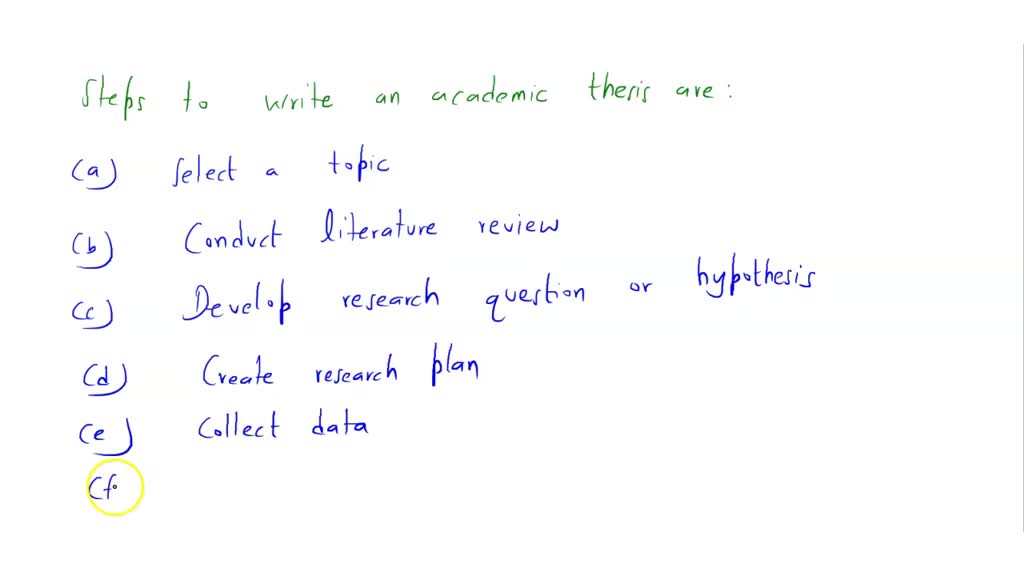 Steps to write an academic thesis are:
(a) Select a topic
(b) Conduct literature review
(c) Develop research question or hypothesis
(d) Create research plan
(e) Collect data
(f